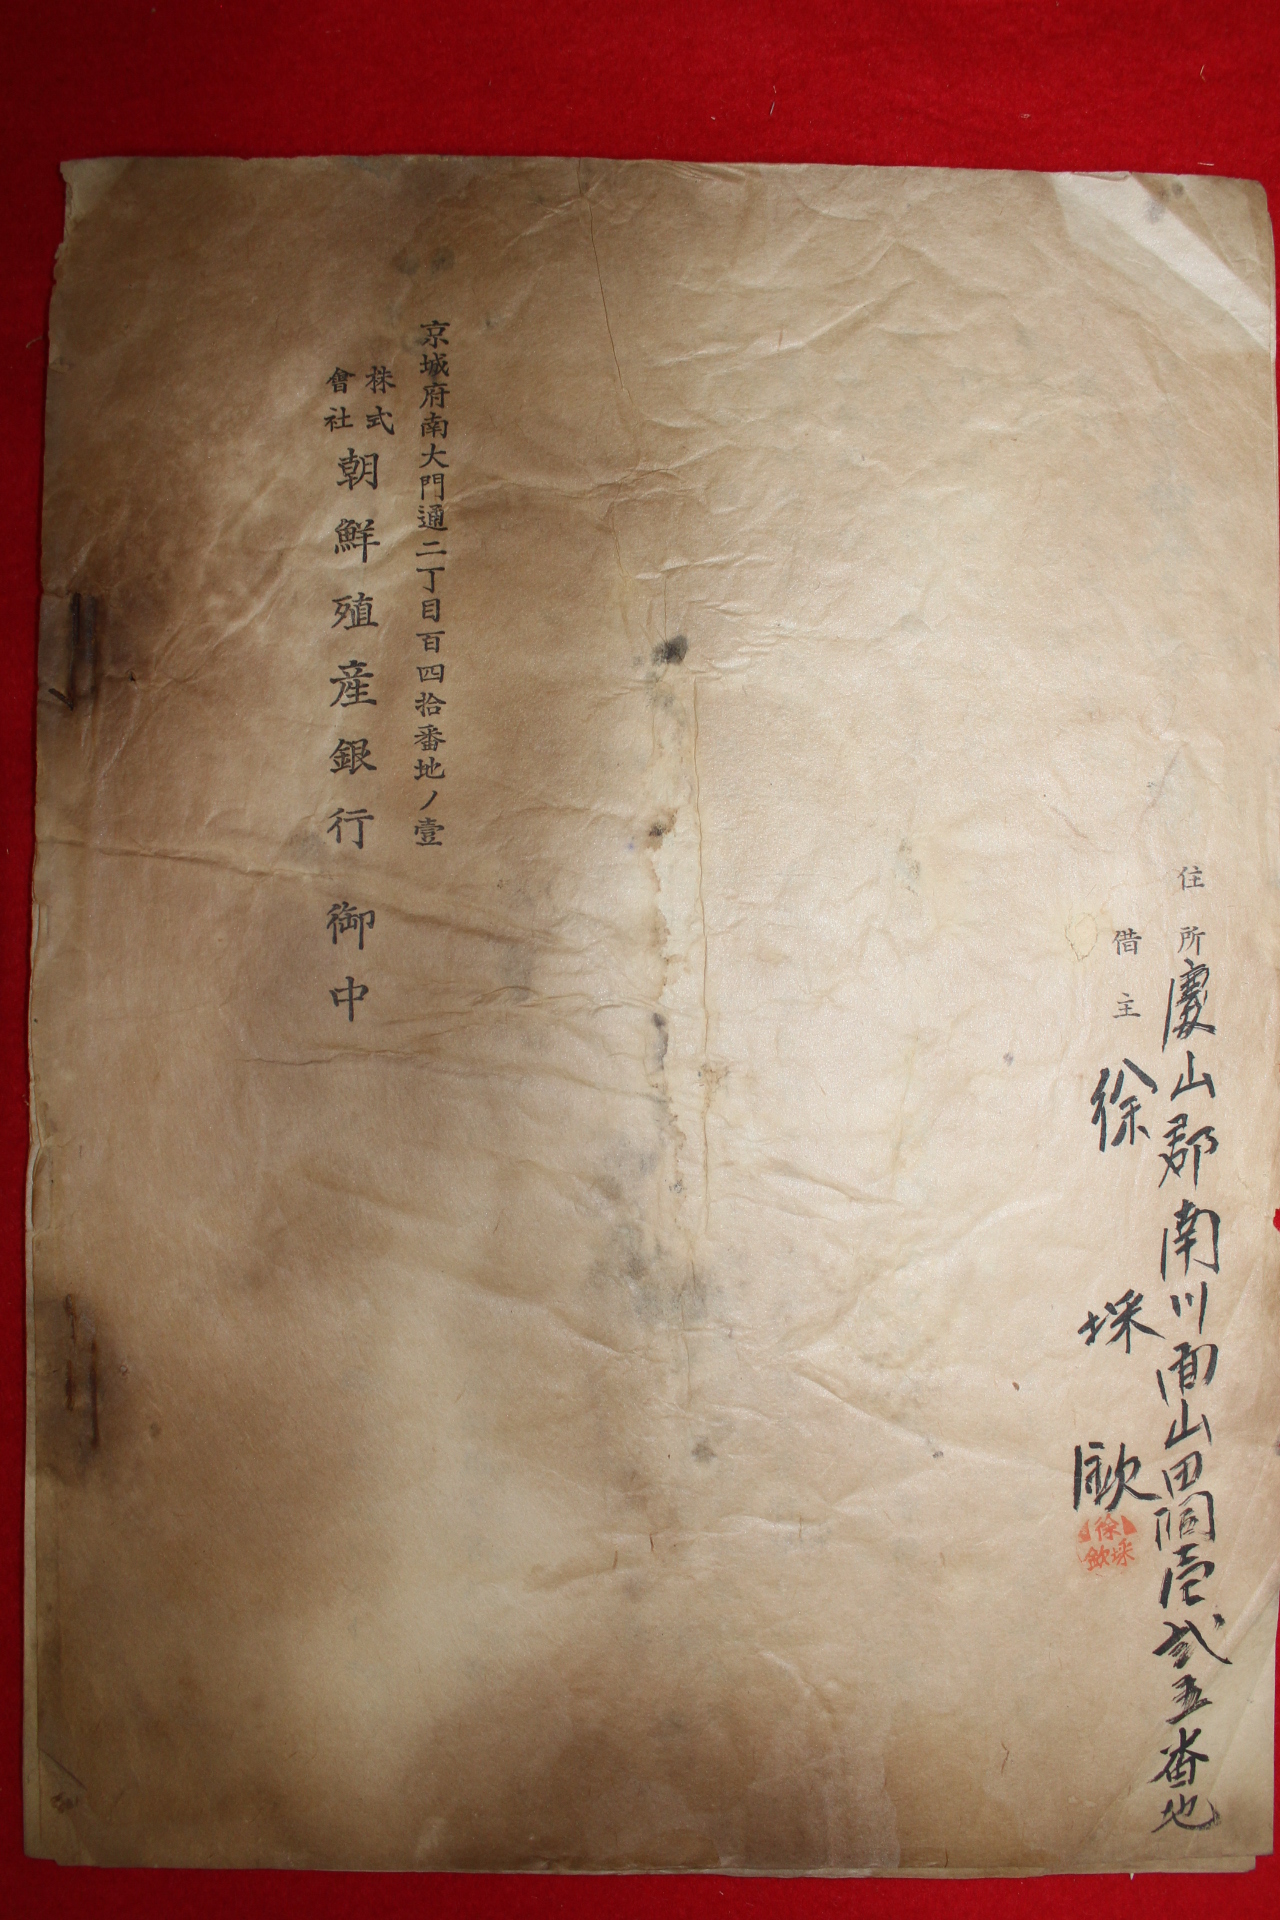 住所 慶山郡南川面山田洞壱弐五番地
借主 徐埰欽
徐埰欽
京城府南大門通二丁目百四拾番地ノ壹
株式會社 朝鮮殖産銀行 御中